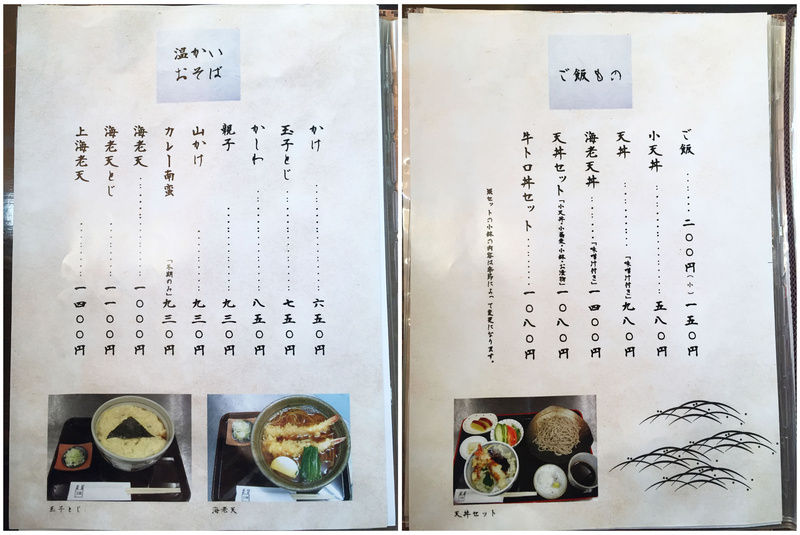 温かい
おそば
かけ……………六五〇円
玉子とじ……………七五〇円
かしわ……………八五〇円
親子……………九三〇円
山かけ……………九三〇円
カレー南蛮「冬期のみ」九三〇円
海老天……………一〇〇〇円
海老天とじ……………一一〇〇円
上海老天……………一四〇〇円
玉子とじ
海老天
ご飯もの
ご飯……二〇〇円(小)一五〇円
小天丼……………五八〇円
天丼……………「味噌汁付き」九八〇円
海老天丼………「味噌汁付き」一四〇〇円
天丼セット「小天丼・小蕎麦・小鉢・お漬物」一〇八〇円
牛トロ丼セット……一〇八〇円
※セットの小鉢の内容は季節によって変更になります。
天丼セット